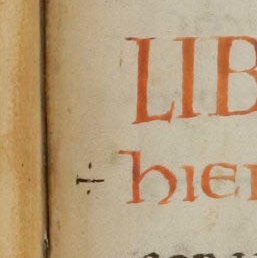 LIB
÷ hIER